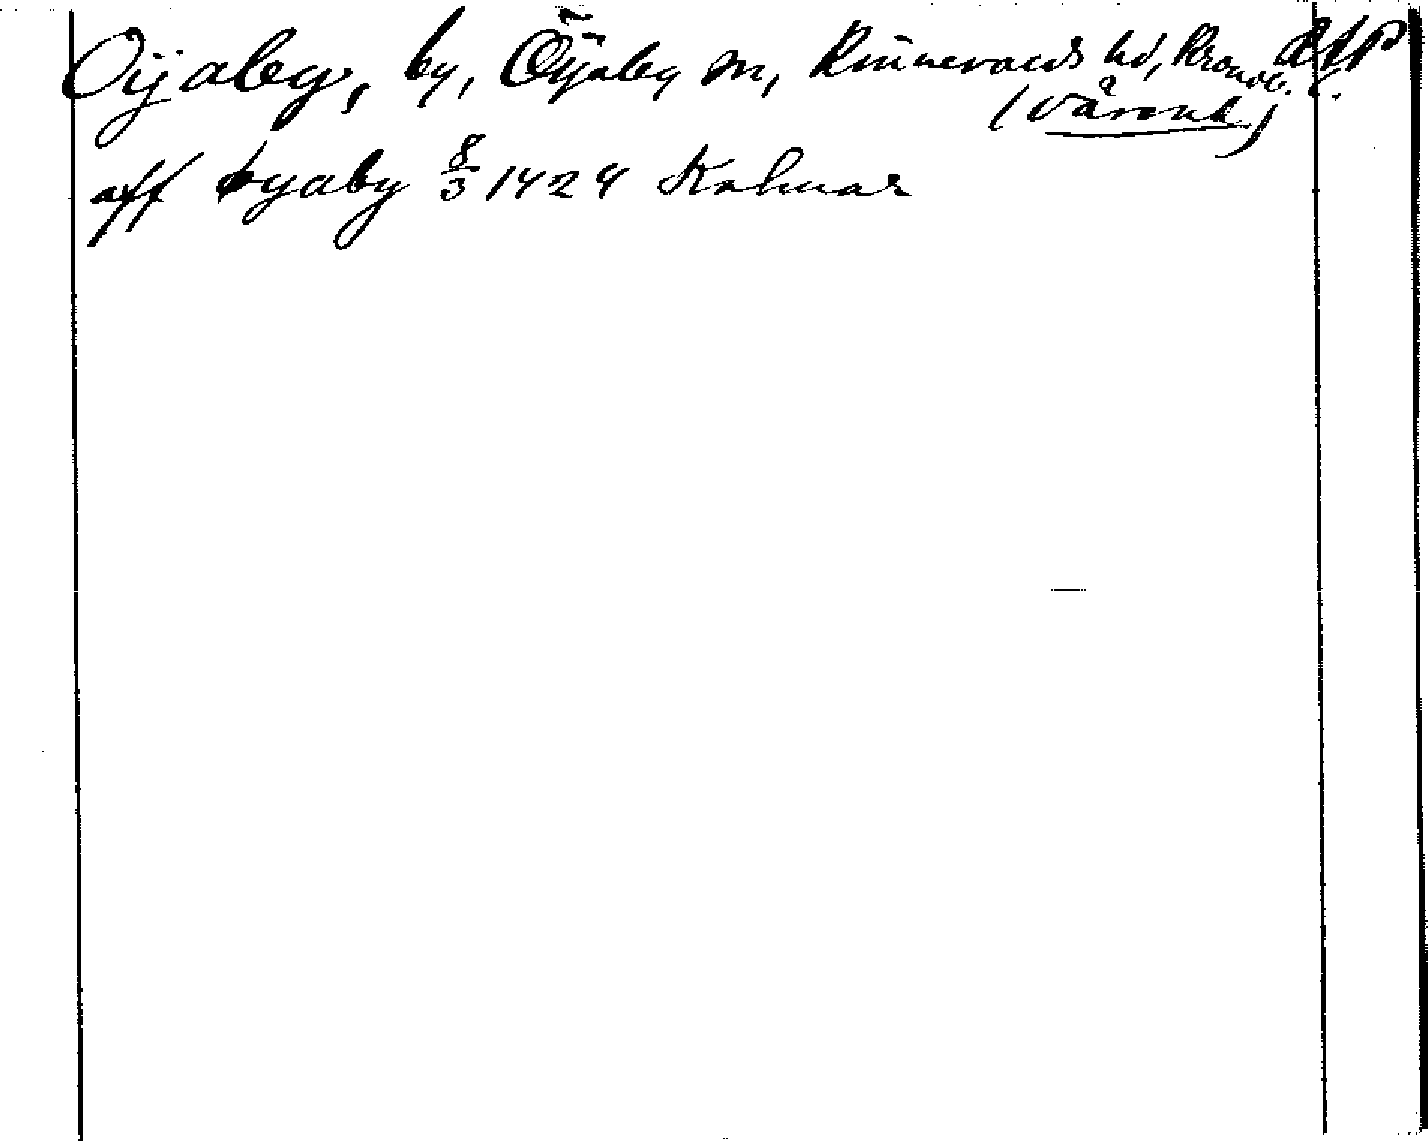 Öijaby, by, Öjaby sn, Kinnevalds hd, Kronob. l.
(Värend)
aff øyaby 8/3 1424 Kalmar